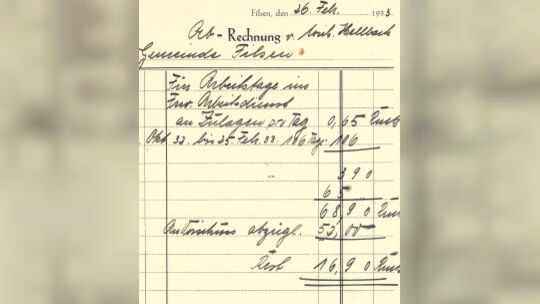 Filsen, den 26. Feb. 1933
Arb - Rechnung v. Hellbach
Gemeinde Filsen
Für Arbeitstage im
Frw. Arbeitsdienst
an Zulagen pro Tag 0,65
Okt 32. bis 25. Feb. 33. 106 Tage. 106
390
65
68,90
An Vorschuss abzügl. 52,00
Rest 16,90